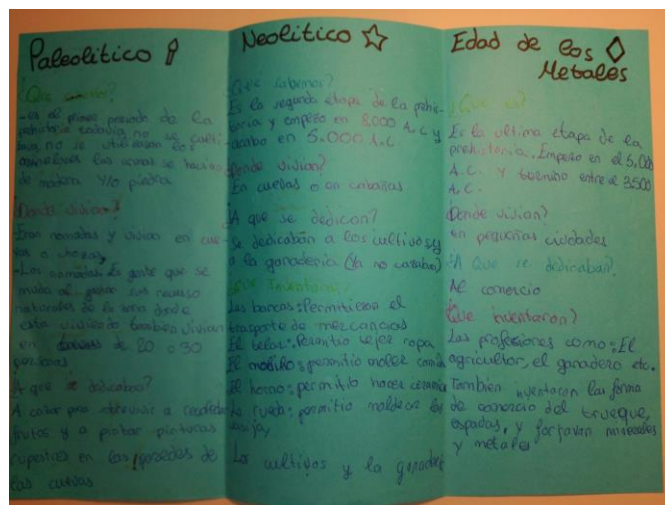 Paleolitico
-es el primer periodo de la
prehistoria todavia no se culti-
baba, no se utilizaban los
las armas se hacian
de madera y/o piedra
Donde vivian?
-Eran nomadas y vivian en cue-
vas o chozas
-Los nomadas Es gente que se
muda al gastar sus recursos
naturales de la zona donde
esta viviendo tambien vivian
en de 20 o 30
personas
A que se dedicaban?
A cazar para sobrevivir a recolectar
frutos y a pintar pinturas
rupestres en las paredes de
las cuevas
Neolitico
Que sabemos?
Es la segunda etapa de la prehis-
toria y empezo en 8.000 A.C y
acabo en 5.000 A.C.
Donde vivian?
En cuevas o en cabañas
A que se dedican?
Se dedicaban a los cultivos y
a la ganaderia (Ya no cazaban)
Las barcas: Permitieron el
trasporte de mercancias
El telar: Permitio tejer ropa
El molino: permitio moler
El horno: permitio hacer ceramica
La rueda: permitio moldear las
vasijas
Los cultivos y la ganaderi
Edad de los
Metales
¿Que es?
Es la ultima etapa de la
prehistoria. Empezo en el 5.000
A.C. y termino entre el 3500
A.C.
Donde vivian?
en pequeñas ciudades
¿A Que se dedicaban?
Al comercio
Que inventaron?
Las profesiones como: El
agricultor, el ganadero etc.
Tambien inventaron la forma
de comercio del trueque,
espadas, y forjavan minerales
y metales